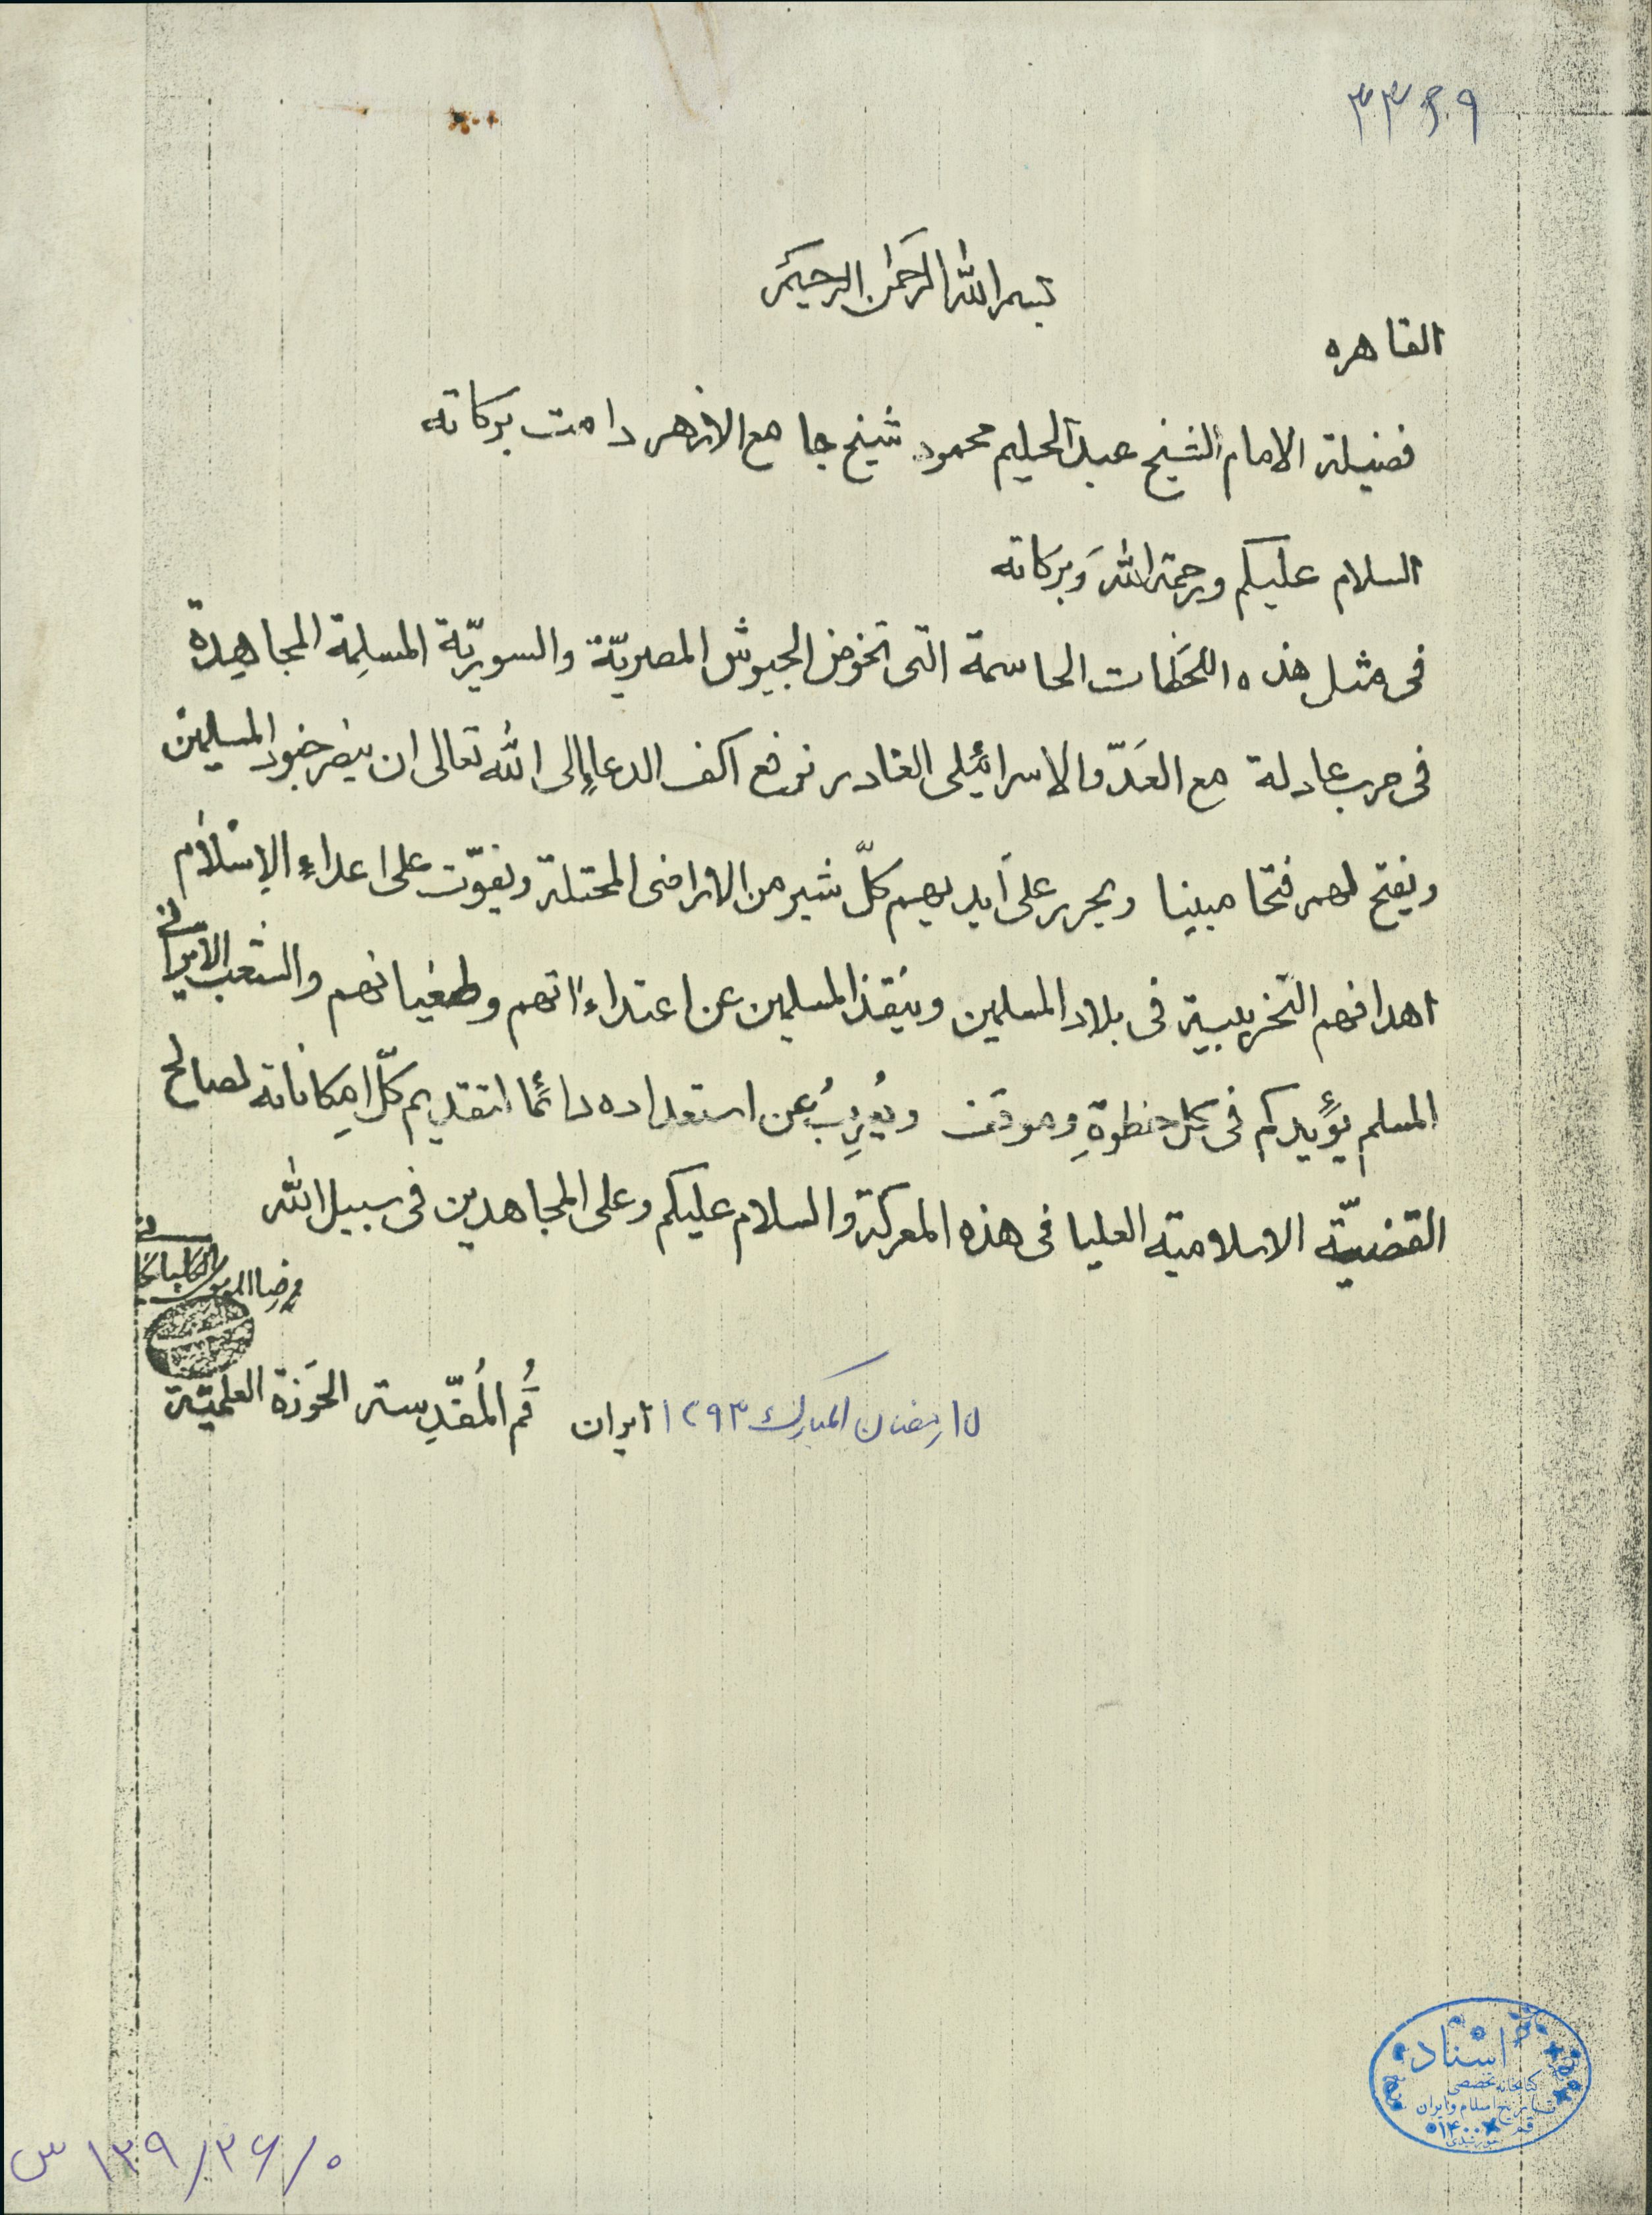 ۳۳۶۹
بسم الله الرحمن الرحيم
القاهره
فضيلة الامام الشيخ عبد الحليم محمود شيخ جامع الازهر دامت بركاته
السلام عليكم ورحمة الله وَبركاته
فى مثل هذه اللحَظات الحاسمة التى تخوض الجيوش المصريّة والسوريّة المسلِمة المجاهِدة
فى حرب عادلة مع العَدّو الاسرائيلى الغادر نرفع اكف الدعاءِ الى الله تعالى ان ينصر جنود المسلمين
ويفتح لهم فتحا مبينا ويحرر على أيديهم كلّ شبر من الاراضى المحتلة ويفوّت على اعداءِ الإسلام
اهدافهم التخريبية فى بلاد المسلمين وينقذ المسلمين عن اعتداءاتهم وطغيانهم والشعب الايرانى
المسلم يؤَيدكم فى كل خطوةِ وموقف ويُعرِبُ عن استعداده دائمًا لتقديم كلّ امِكاناته لصالح
القضيّة الاسلامية العليا فى هذه المعركة والسلام عليكم وعلى المجاهدين فى سبيل الله
محمد رضا الموسوى الگلپايگانى
۱۵ رمضان المبارك ۱۳۹۳ ايران قُم المُقدّسة الحَوزة العلميّة
اسناد
كتابخانه تخصصى
تاريخ اسلام و ايران
قم
۱۴۰۰
۱۳۹/۳۶/۰ س